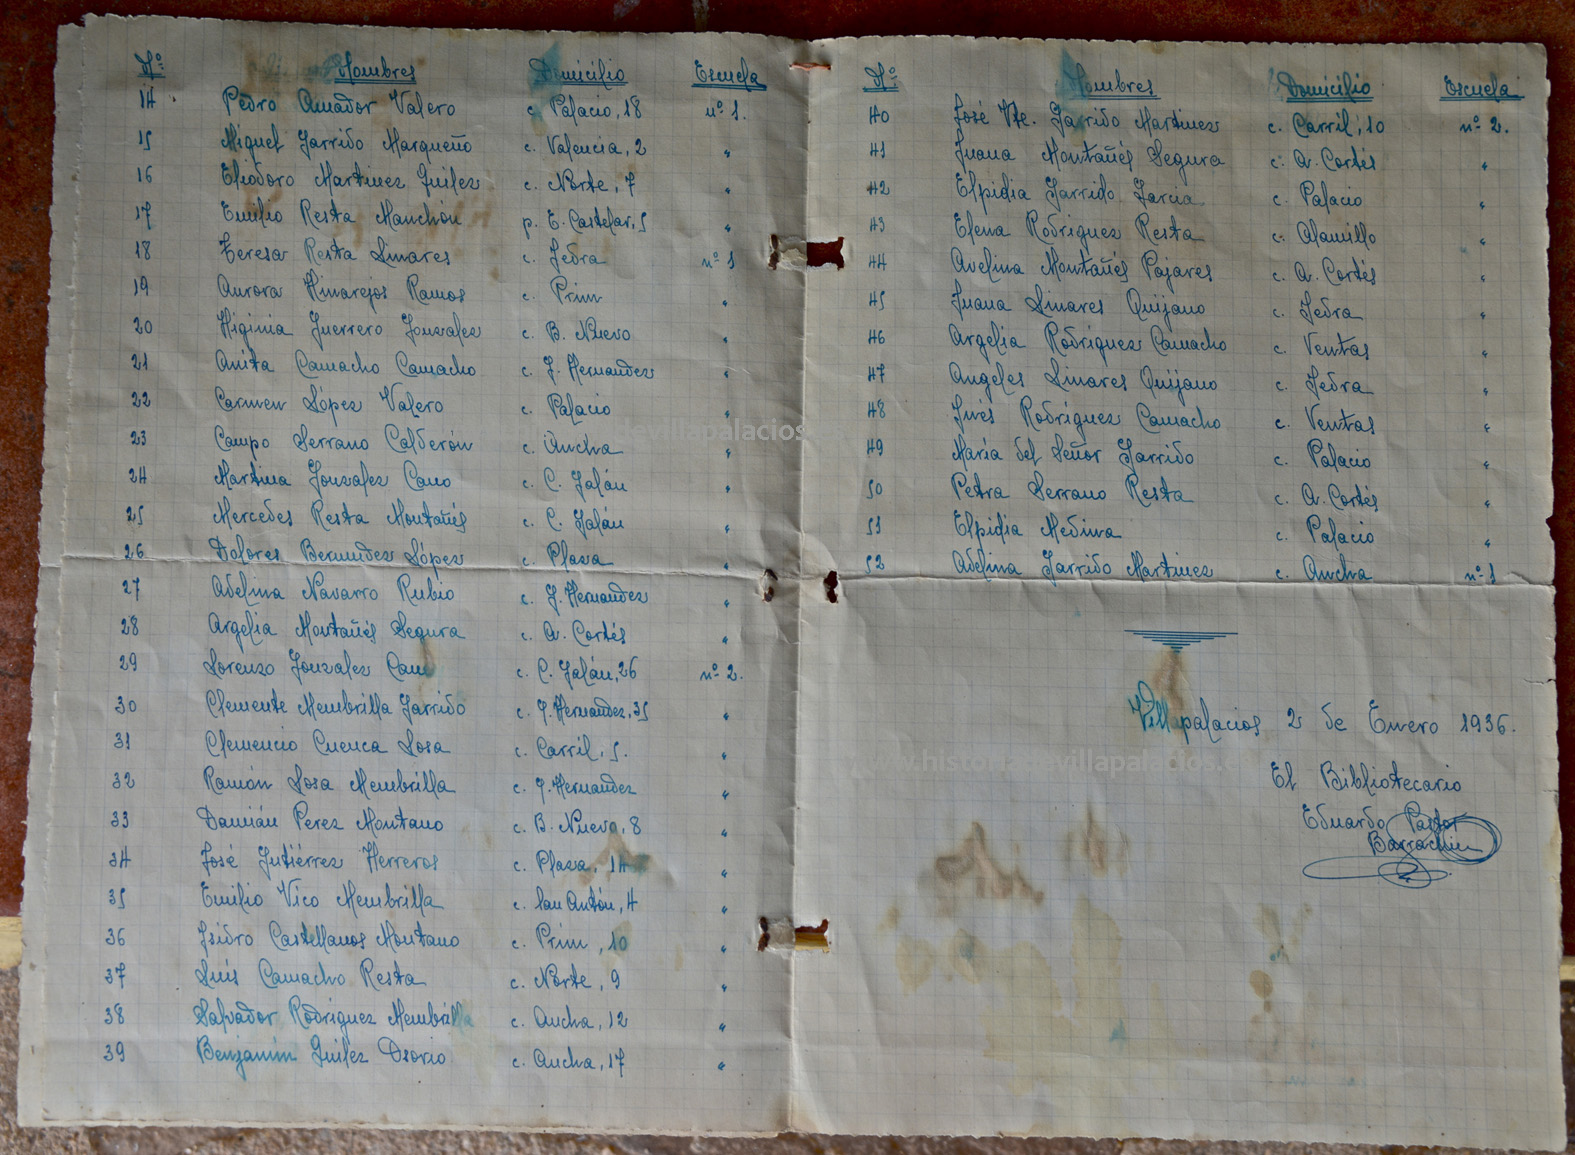 Nº Nombres Domicilio Escuela
14 Pedro Amador Valero c. Palacio, 18 nº 1.
15 Miguel Garrido Marqueño c. Valencia, 2 "
16 Eliodoro Martinez Guilez c. Norte, 7 "
17 Emilio Resta Manchón p. E. Castelar, 5 "
18 Teresa Resta Linares c. Jedra nº 1
19 Aurora Hinarejos Ramos c. Prim "
20 Higinia Guerrero Gonzalez c. B. Nuevo "
21 Anita Camacho Camacho c. J. Hernandez "
22 Carmen López Valero c. Palacio "
23 Campo Serrano Calderón c. Ancha "
24 Martina Gonzalez Cano c. C. Galán "
25 Mercedes Resta Montañés c. C. Galán "
26 Dolores Bermudez López c. Plaza "
27 Adelina Navarro Rubio c. J. Hernandez "
28 Argelia Montañés Segura c. A. Cortés "
29 Lorenzo Gonzalez Cano c. C. Galán, 26 nº 2.
30 Clemente Membrilla Garrido c. J. Hernandez, 35 "
31 Clemencio Cuenca Sosa c. Carril, 5. "
32 Ramón Sosa Membrilla c. J. Hernandez "
33 Damián Perez Montano c. B. Nuevo, 8 "
34 José Gutiérrez Herreros c. Plaza, 14 "
35 Emilio Vico Membrilla c. San Antón, 4 "
36 Isidro Castellanos Montano c. Prim, 10 "
37 Luis Camacho Resta c. Norte, 9 "
38 Salvador Rodriguez Membrilla c. Ancha, 12 "
39 Benjamín Guilez Osorio c. Ancha, 17 "
Nº Nombres Domicilio Escuela
40 José Vte. Garrido Martinez c. Carril, 10 nº 2.
41 Juana Montañés Segura c. A. Cortés "
42 Elpidia Garrido Garcia c. Palacio "
43 Elena Rodriguez Resta c. Alamillo "
44 Avelina Montañés Pajares c. A. Cortés "
45 Juana Linares Quijano c. Jedra "
46 Argelia Rodriguez Camacho c. Ventas "
47 Angeles Linares Quijano c. Jedra "
48 Inés Rodriguez Camacho c. Ventas "
49 María del Señor Garrido c. Palacio "
50 Petra Serrano Resta c. A. Cortés "
51 Elpidia Medina c. Palacio "
52 Adelina Garrido Martinez c. Ancha nº 1
Villapalacios 2 de Enero 1936.
El Bibliotecario
Eduardo Pastor